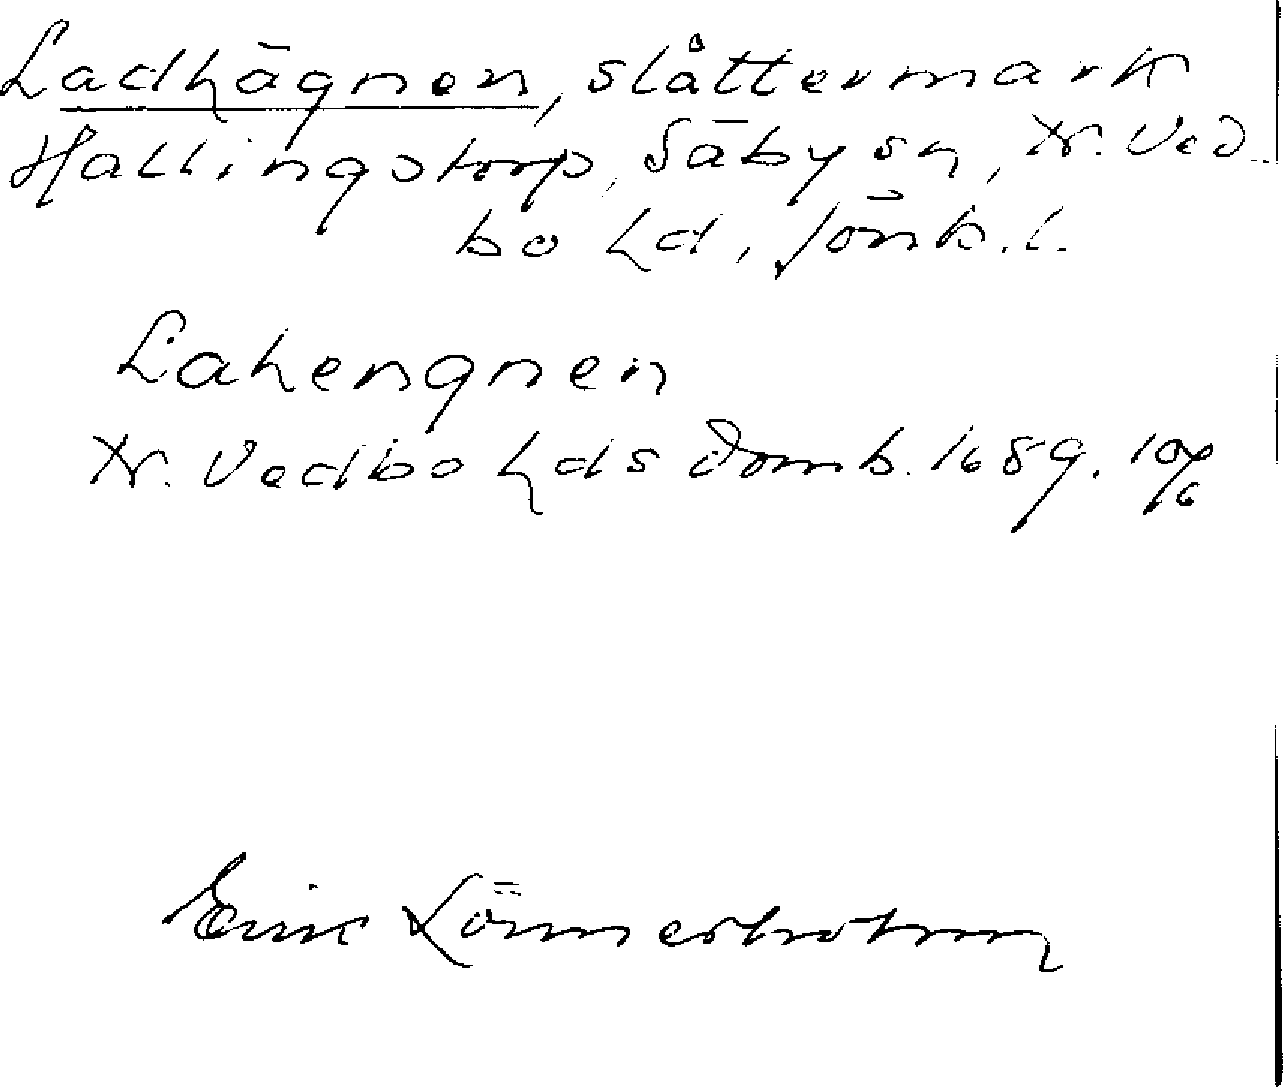 Ladhägnen, slåttermark
Hallingstorp, Säby sn, N. Ved-
bo hd, Jönk. l.
Lahengnen
N. Vedbo hds Domb. 1689. 10/6
Erik Lönnerholm